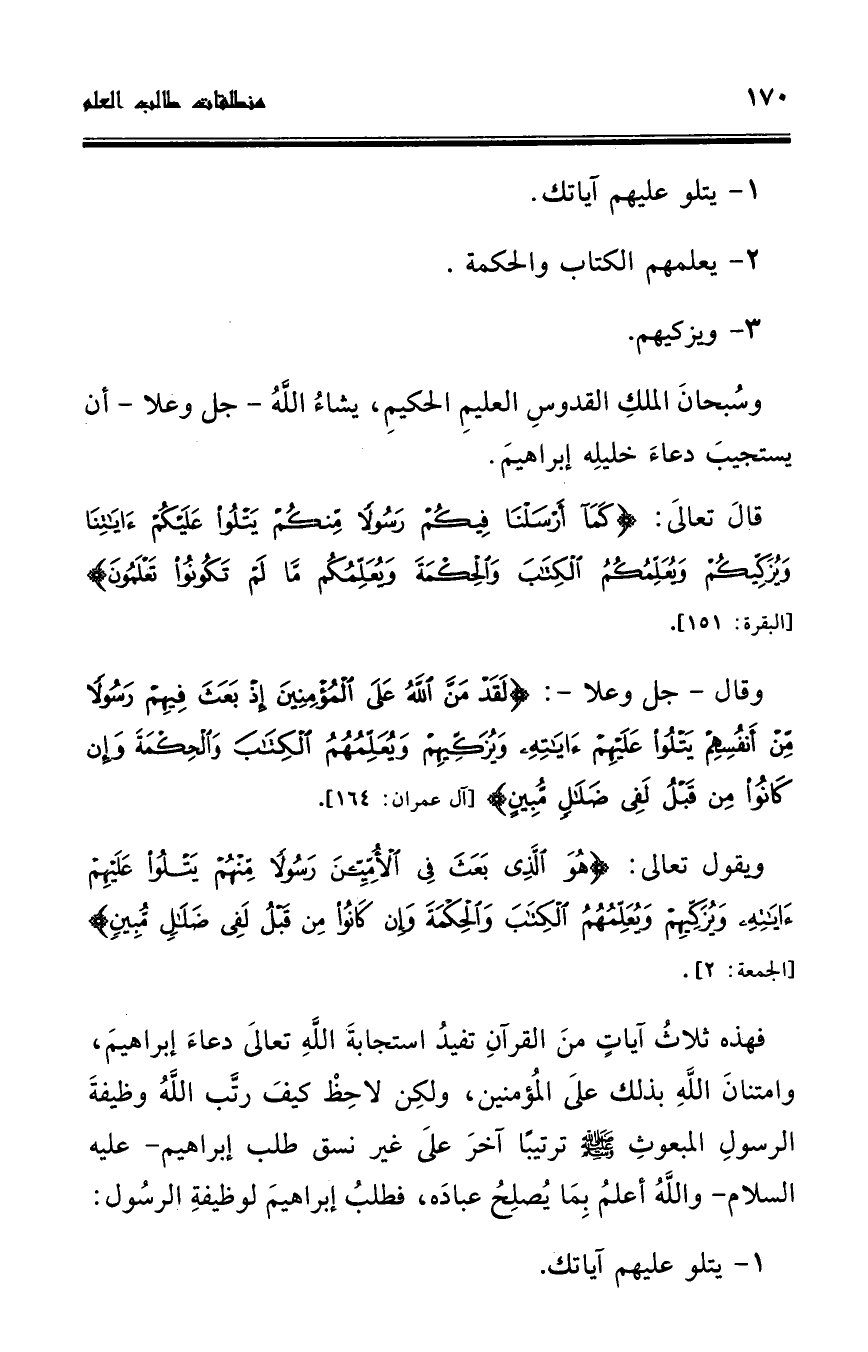 ١٧٠ منطلقات طالب العلم
١- يتلو عليهم آياتك.
٢- يعلمهم الكتاب والحكمة .
٣- ويزكيهم.
وسُبحانَ الملكِ القدوسِ العليمِ الحكيمِ، يشاءُ اللَّهُ - جل وعلا - أن
يستجيبَ دعاءَ خليلِه إبراهيمَ.
قالَ تعالىَ: ﴿كَمَآ أَرْسَلْنَا فِيكُمْ رَسُولًا مِّنكُمْ يَتْلُوا۟ عَلَيْكُمْ ءَايَٰتِنَا
وَيُزَكِّيكُمْ وَيُعَلِّمُكُمُ ٱلْكِتَٰبَ وَٱلْحِكْمَةَ وَيُعَلِّمُكُم مَّا لَمْ تَكُونُوا۟ تَعْلَمُونَ﴾
[البقرة: ١٥١].
وقال - جل وعلا -: ﴿لَقَدْ مَنَّ ٱللَّهُ عَلَى ٱلْمُؤْمِنِينَ إِذْ بَعَثَ فِيهِمْ رَسُولًا
مِّنْ أَنفُسِهِمْ يَتْلُوا۟ عَلَيْهِمْ ءَايَٰتِهِۦ وَيُزَكِّيهِمْ وَيُعَلِّمُهُمُ ٱلْكِتَٰبَ وَٱلْحِكْمَةَ وَإِن
كَانُوا۟ مِن قَبْلُ لَفِى ضَلَٰلٍ مُّبِينٍ﴾ [آل عمران: ١٦٤].
ويقول تعالى: ﴿هُوَ ٱلَّذِى بَعَثَ فِى ٱلْأُمِّيِّـۧنَ رَسُولًا مِّنْهُمْ يَتْلُوا۟ عَلَيْهِمْ
ءَايَٰتِهِۦ وَيُزَكِّيهِمْ وَيُعَلِّمُهُمُ ٱلْكِتَٰبَ وَٱلْحِكْمَةَ وَإِن كَانُوا۟ مِن قَبْلُ لَفِى ضَلَٰلٍ مُّبِينٍ﴾
[الجمعة: ٢] .
فهذه ثلاثُ آياتٍ منَ القرآنِ تفيدُ استجابةَ اللَّهِ تعالىَ دعاءَ إبراهيمَ،
وامتنانَ اللَّهِ بذلك علىَ المُؤمنين، ولكِن لاحِظْ كيفَ رتَّب اللَّهُ وظيفةَ
الرسولِ المبعوثِ ﷺ ترتيبًا آخرَ علىَ غير نسق طلب إبراهيم- عليه
السلام- واللَّهُ أعلمُ بِمَا يُصلِحُ عبادَه، فطلبُ إبراهيمَ لوظيفةِ الرسُول:
١- يتلو عليهم آياتك.